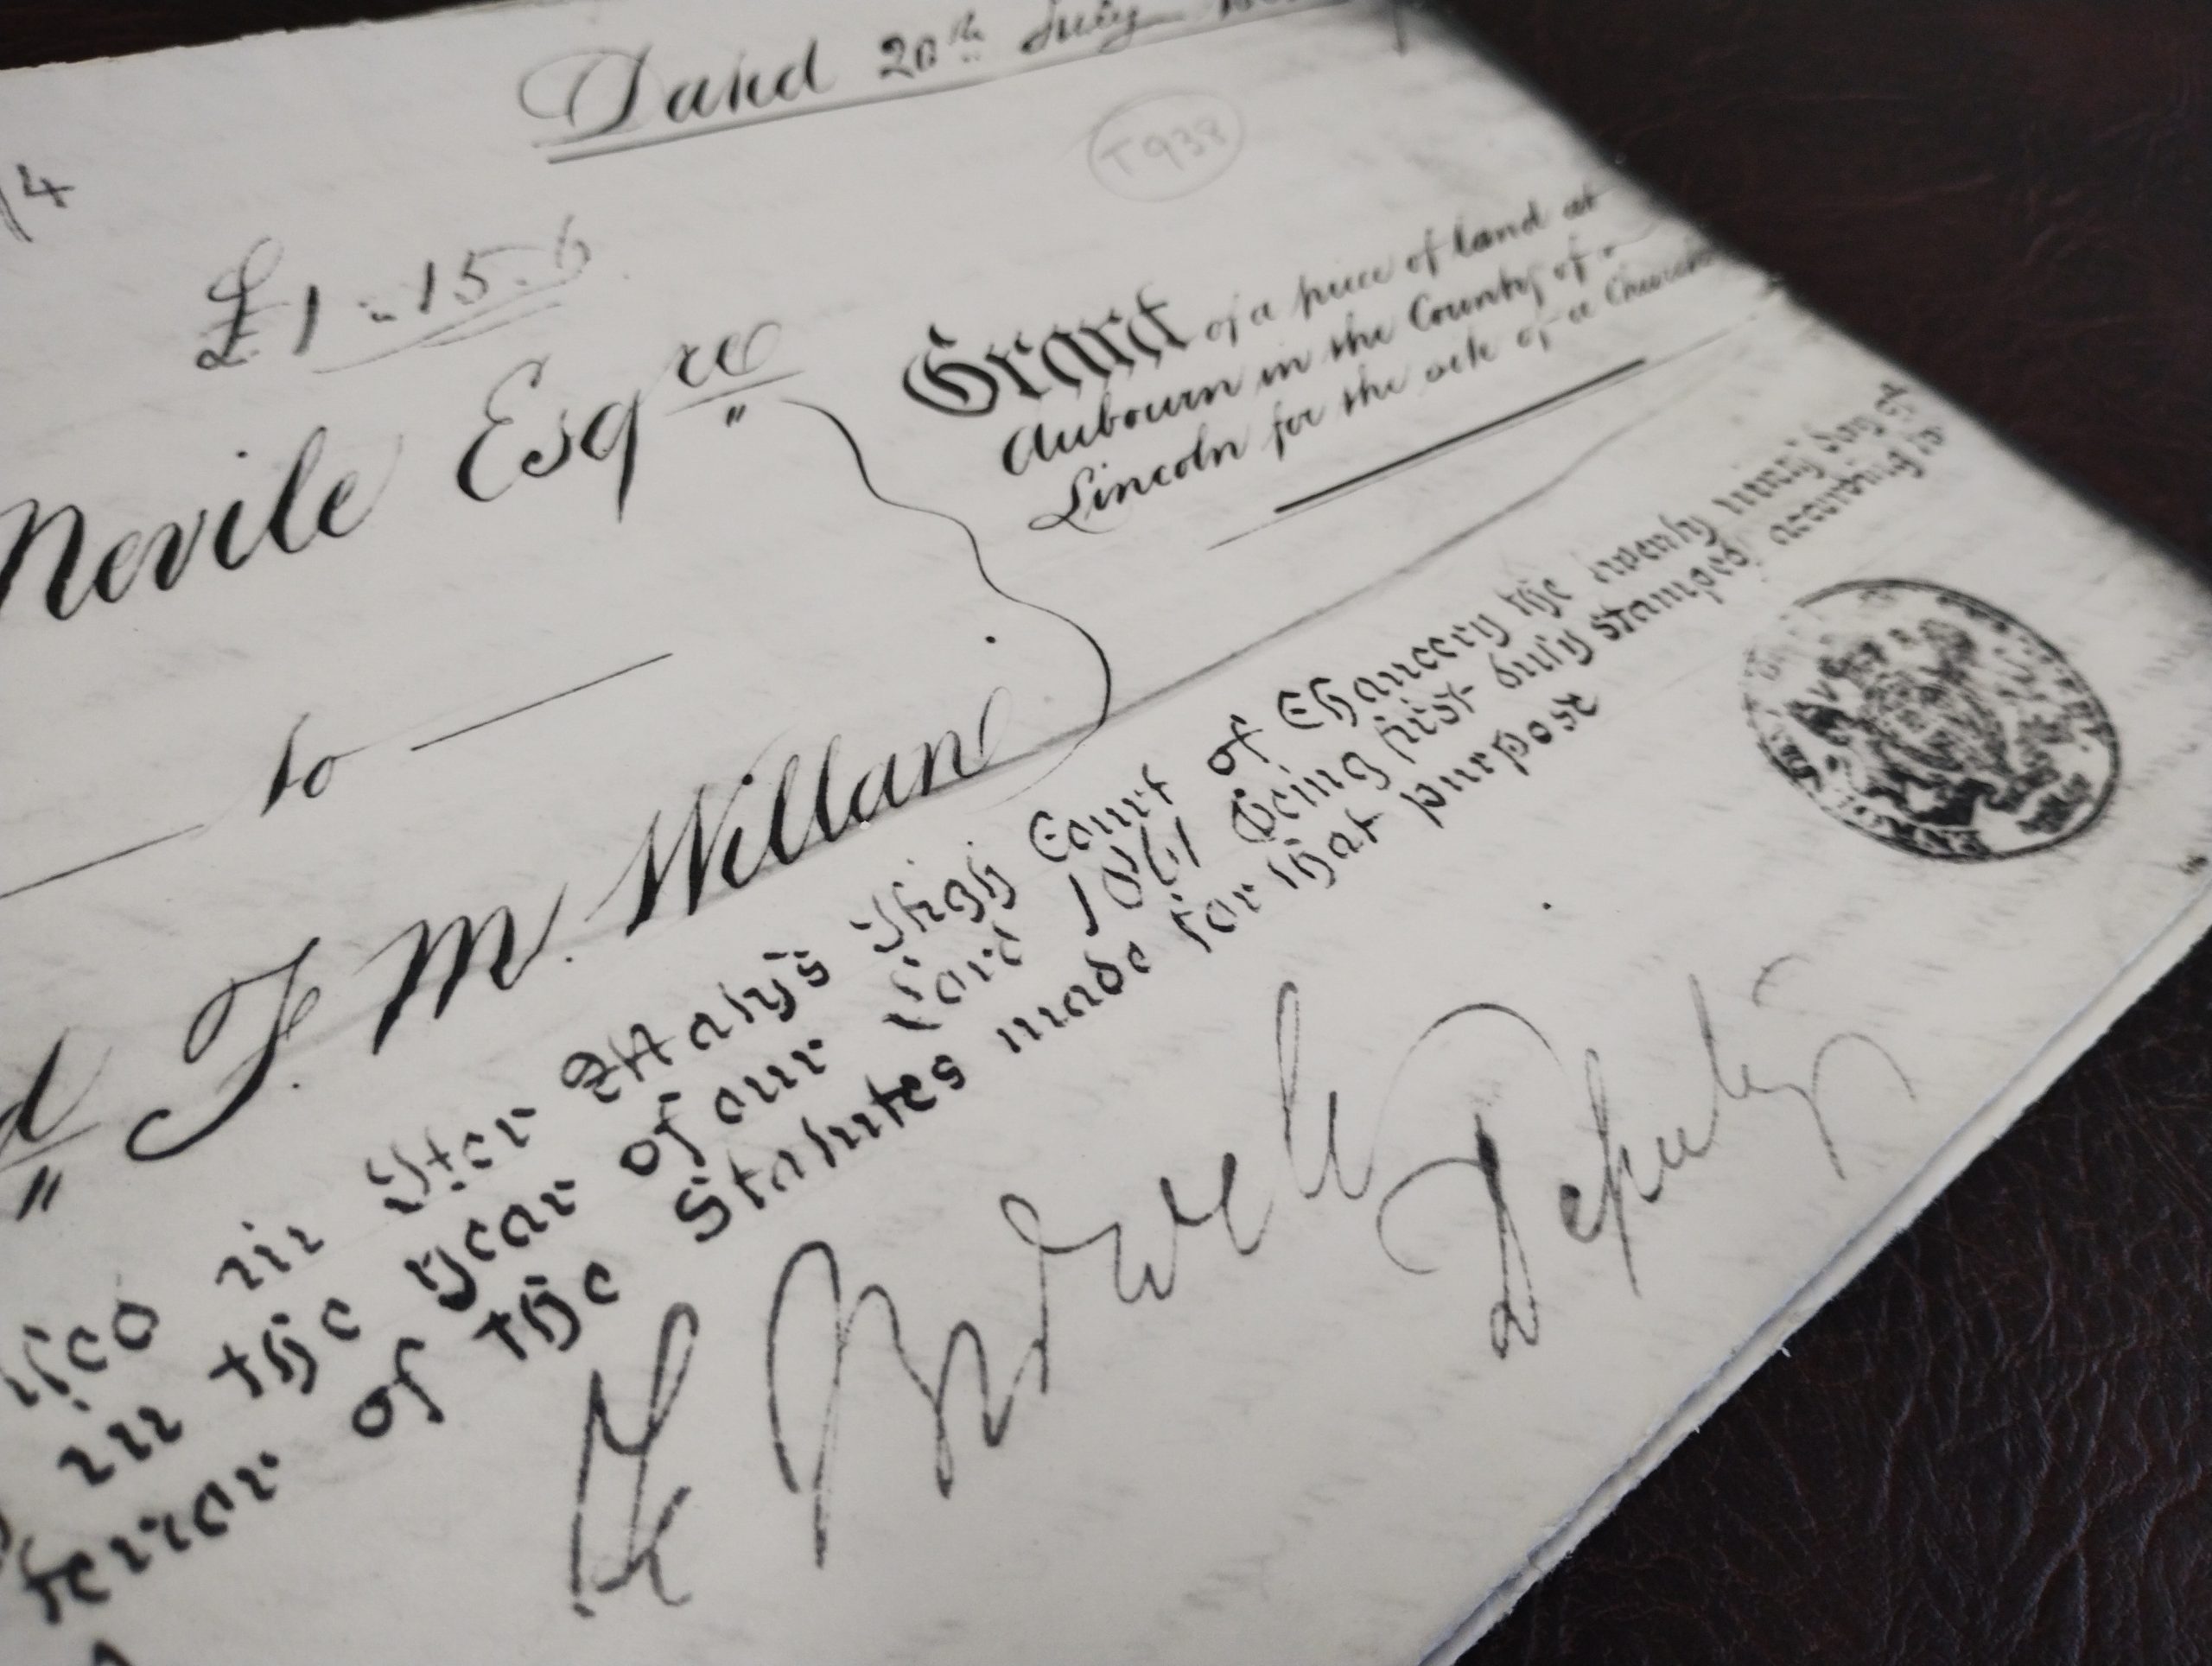 Dated 20th July
/4
T938
£1 " 15. 6
Nevile Esqre
Grant of a piece of land at
Aubourn in the County of
Lincoln for the site of a Church
to
d T. M. Willan
in Her Majty's High Court of Chancery the twenty ninth day of
in the year of our Lord 1861 being first duly stamped according to
tenor of the Statutes made for that purpose
Deputy